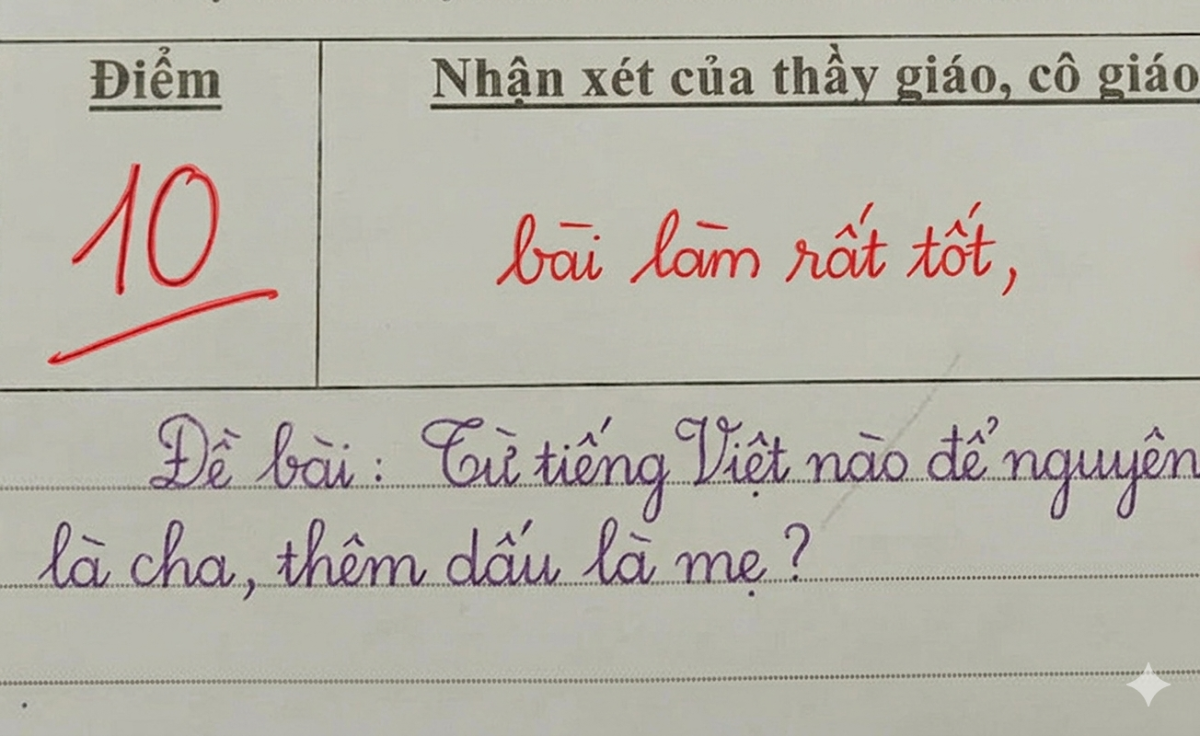 Điểm
Nhận xét của thầy giáo, cô giáo
10
bài làm rất tốt,
Đề bài: Từ tiếng Việt nào để nguyên
là cha, thêm dấu là mẹ?